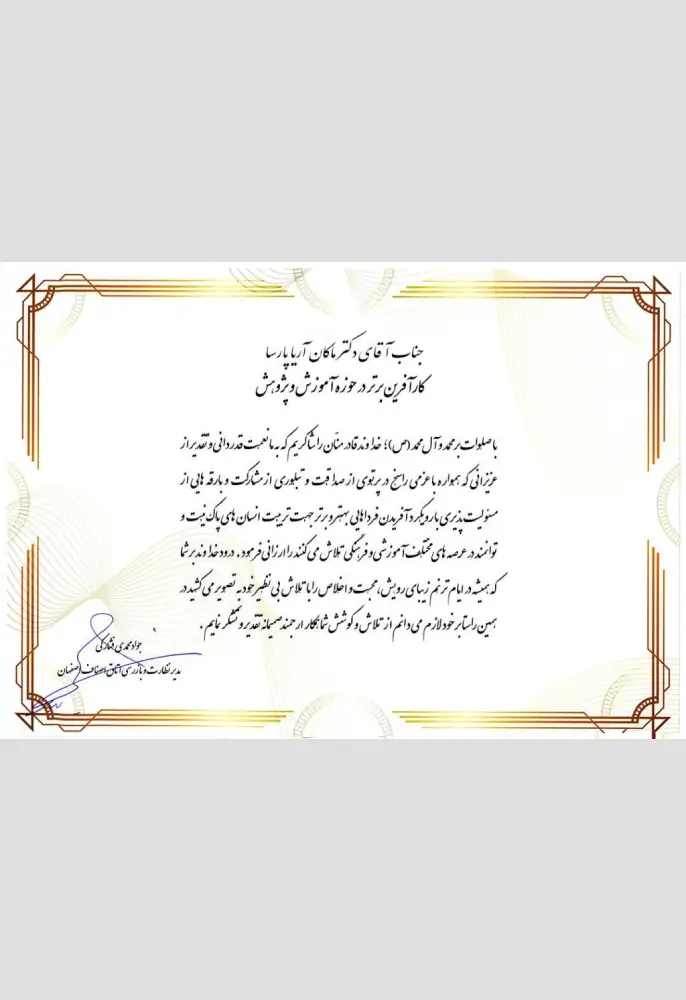 جناب آقای دکتر ماکان آریا پارسا
کارآفرین برتر در حوزه آموزش و پژوهش
با صلوات بر محمد و آل محمد (ص)؛ خداوند قادر منّان را شاکریم که به ما نعمت قدردانی و تقدیر از
عزیزانی که همواره با عزمی راسخ در پرتوی از صداقت و تبلوری از مشارکت و بارقه هایی از
مسئولیت پذیری با رویکرد آفریدن فرداهایی بهتر و برتر جهت تربیت انسان های پاک نیت و
توانمند در عرصه های مختلف آموزشی و فرهنگی تلاش می کنند را ارزانی فرمود. درود خداوند بر شما
که همیشه در ایام ترنم زیبای رویش، محبت و اخلاص را با تلاش بی نظیر خود به تصویر می کشید در
همین راستا بر خود لازم می دانم از تلاش و کوشش شما همکار ارجمند صمیمانه تقدیر و تشکر نمایم.
جواد محمدی فشارکی
مدیر نظارت و بازرسی اتاق اصناف اصفهان